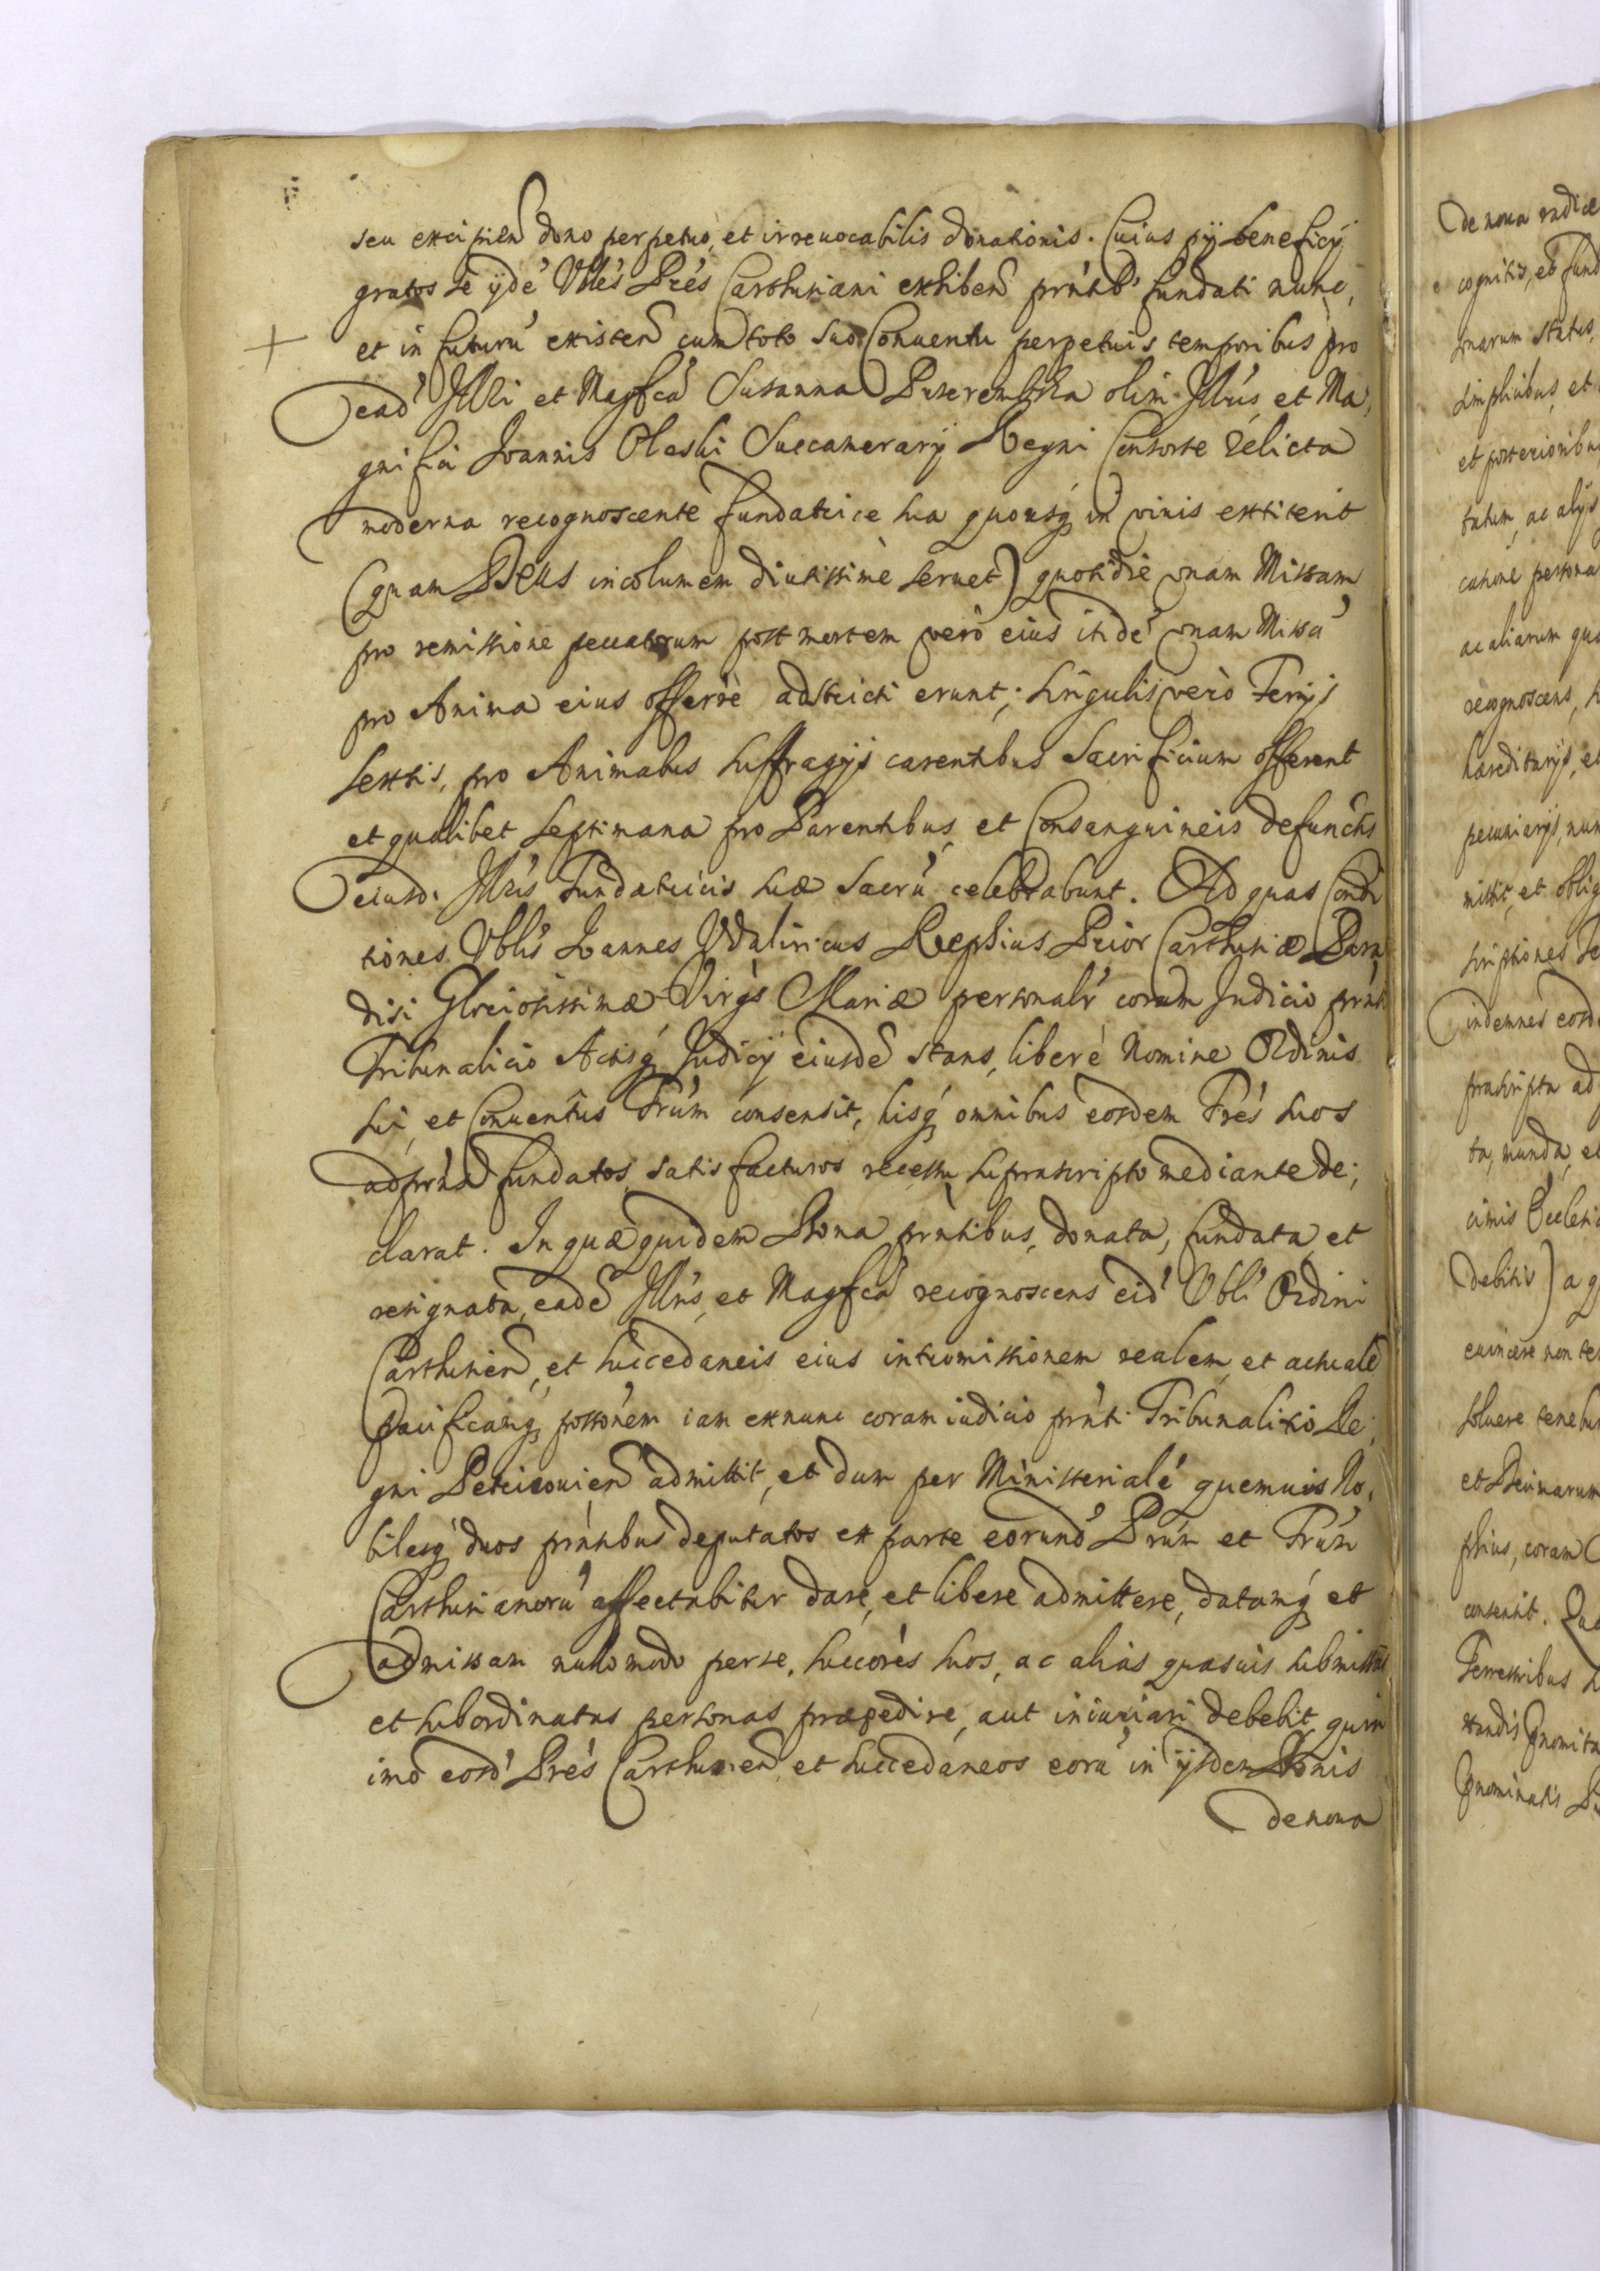 seu excipien dono perpetuo, et irreuocabilis donationis. Cuius pÿ beneficÿ
gratos se ÿdé Vbles Prés Carthusiani exhiben prntib' fundati nunc,
et in futurú existen cum toto suo Conuentu perpetuis temporibus pro
ead' Jlli et Magfca Susanna Przerembska olim Jllris et Ma,
gnifici Joannis Oleski Succamerarÿ Regni Consorte relicta
moderna recognoscente fundatrice sua quousq in viuis extiterit
(quam Deus incolumem diutissimè seruet) quotidie vnam Missam
pro remissione peccatorum post mortem verò eius itidé vnam Missá
pro Anima eius offerre adstricti erunt; singulis verò Ferÿs
sextis, pro Animabus suffragÿs carentibus Sacrificium offerent
et qualibet septimana pro Parentibus, et Consanguineis defunctis
eiusd: Jllris Fundatricis suæ Sacrú celebrabunt. Ad quas Condi
tiones Vblis Joannes Vdalricus Repsius Prior Carthusiæ Para
disi Gloriosissimæ Virgs Mariæ personalr coram Judicio prnti
Tribunalicio Actisq Judicÿ eiusdé stans, liberé Nomine Ordinis
sui, et Conuentus Frúm consensit, hisq omnibus eosdem Frés suos
ad prns fundatos satisfacturos recessu suprascripto mediante de;
clarat. In quæ quidem Bona prntibus, donata, fundata, et
resignata, eadé Jllris, et Magfca recognoscens eid' Vbli Ordini
Carthusien, et succedaneis eius intromissionem realem, et actualé
pacificamq possonem iam exnunc coram iudicio prnti Tribunalitio Re;
gni Petricouien admittit, et dum per Ministerialé quemuis No,
bilesq duos prntibus deputatos ex parte eorund' Prúm et Frúm
Carthusianorú affectabitur dare, et libere admittere, datamq et
admissam nullo modo per se, succores suos, ac alias quasuis submissas
et subordinatas personas præpedire, aut iniuriari debebit, quin
imo eosd' Prés Carthusien et succedaneos eorú in ÿsdem Bonis
de noua
De noua radice
cognitis, et fund
marum status,
simplicibus, et
et posterioribus
tutum, ac alÿs
catione persona
ac aliarum qua
recognoscens, s
hæreditarÿs, et
pecuniarÿs, nun
mittit, et oblig
scriptiones se
indemnes eosd
præscripta ad
ta, munda, et
cimis Ecclesi
debitis) a q
euincere non te
soluere tenebu
et Decimarum
psius, coram
consensit. Qua
Terrestribus